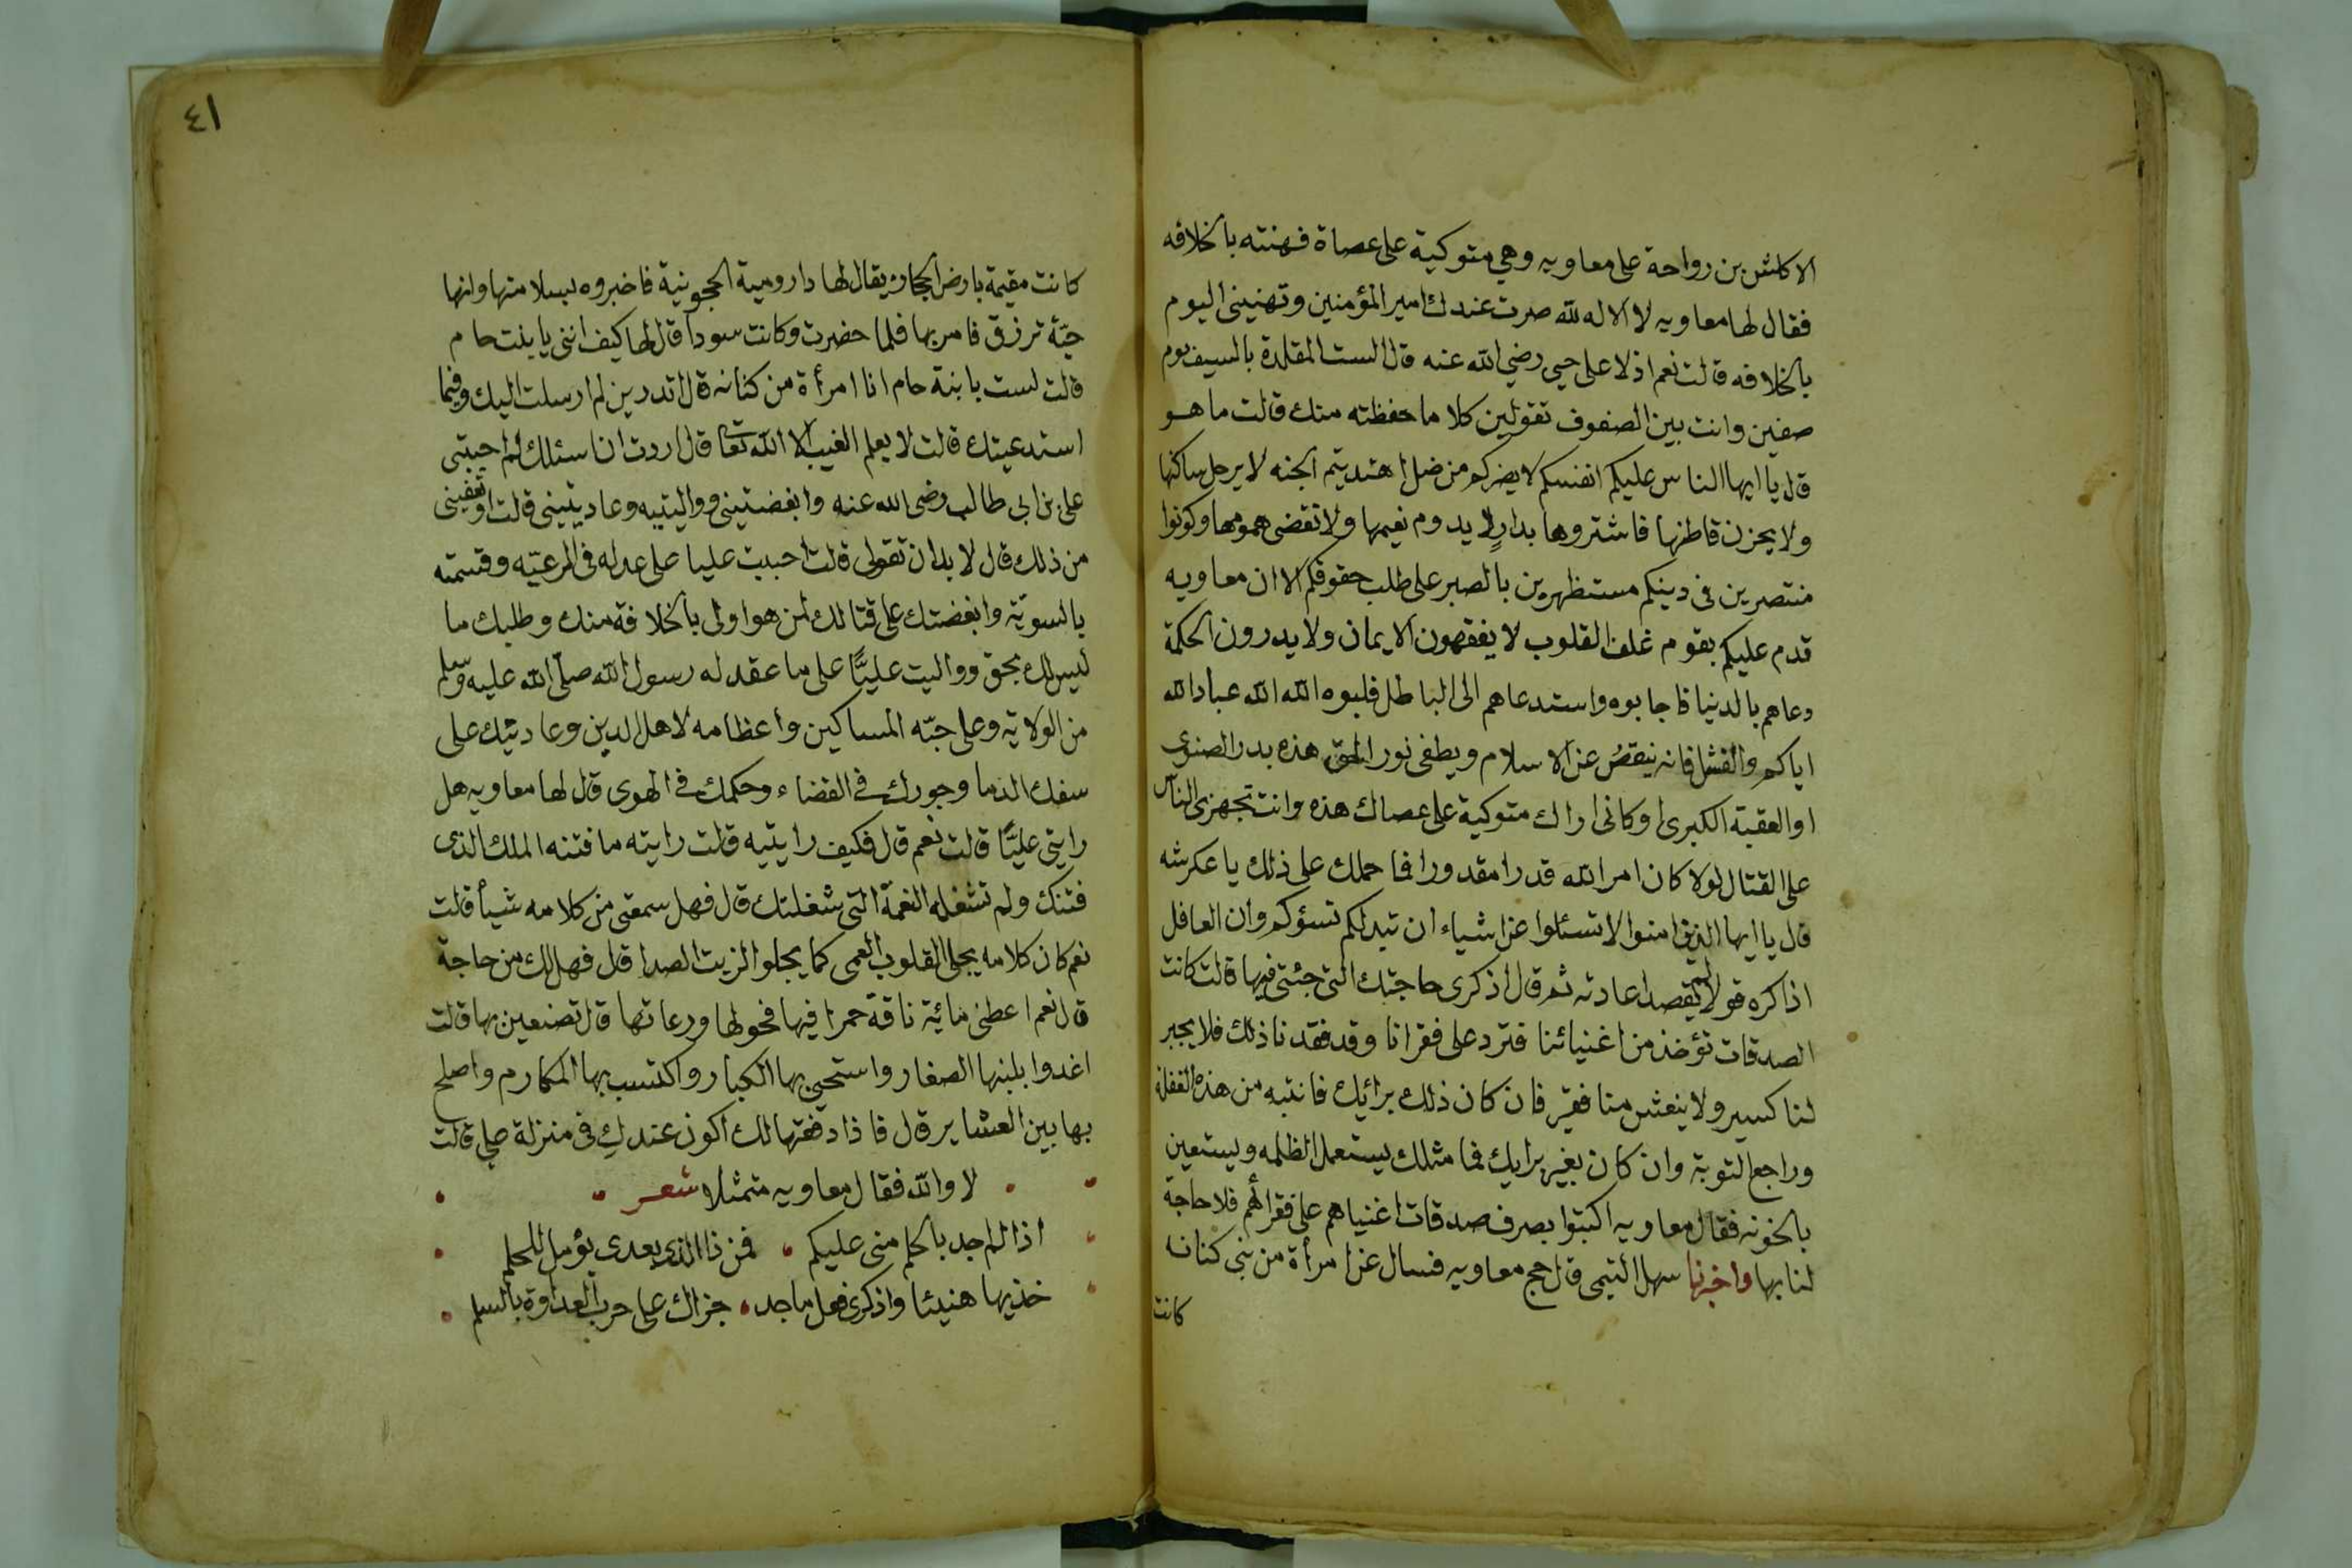 الاكلش بن رواحة على معاويه وهي متوكية على عصاة فهنته بالخلافه
فقال لها معاويه لا اله الا الله صرت عندك امير المؤمنين وتهنيني اليوم
بالخلافه قالت نعم اذ لا على حيي رضي الله عنه قال الست المقلدة بالسيف يوم
صفين وانت بين الصفوف تقولين كلاما حفظته منك قالت ما هو
قال يا ايها الناس عليكم انفسكم لا يضركم من ضل اذا اهتديتم الجنه لا يرحل ساكنها
ولا يحزن قاطنها فاشتروها بدارٍ لا يدوم نعيمها ولا تقضى همومها وكونوا
منتصرين في دينكم مستظهرين بالصبر على طلب حقوقكم الا ان معاويه
قدم عليكم بقوم غلف القلوب لا يفقهون الايمان ولا يدرون الحكمة
دعاهم بالدنيا فاجابوه واستدعاهم الى الباطل فلبوه الله الله عباد الله
اياكم والفشل فانه ينقصُ عن الاسلام ويطفى نور الحق هذه بدر الصغرى
او العقبة الكبرى وكاني اراك متوكية على عصاك هذه وانت تجهزي الناس
على القتال لولا كان امر الله قدرا مقدورا فما حملك على ذلك يا عكرشه
قال يا ايها الذين امنوا لا تسئلوا عن اشياء ان تبدلكم تسؤكم وان العاقل
اذا كره قولا لم يقصد اعادته ثم قال اذكرى حاجتك التى جئتى فيها قالت كانت
الصدقات تؤخذ من اغنيائنا فترد على فقرانا وقد فقدنا ذلك فلا يجبر
لنا كسير ولا ينعش منا فقير فان كان ذلك برائيك فانتبه من هذه الغفلة
وراجع التوبة وان كان بغير برايك فما مثلك يستعمل الظلمه ويستعين
بالخونه فقال معاويه اكتبوا بصرف صدقات اغنياهم على فقرائهم فلا حاجة
لنا بها واخبرنا سهل التيمى قال حج معاويه فسال عن امرأة من بني كنانه
كانت
٤١
كانت مقيمة بارض الحجاز يقال لها داروميه الحجونية فاخبروه بسلامتها وانها
حيّة ترزق فامر بها فلما حضرت وكانت سودا قال لها كيف انتي يا بنت حام
قالت لست بابنة حام انا امرأة من كنانه قال اتدرين لم ارسلت اليك وفيما
استدعيتك قالت لا يعلم الغيب الا الله تعا قال اردت ان اسئلك لم احببتى
على بن ابي طالب رضي الله عنه وابغضتيني وواليتيه وعاديتيني قالت اوتعفيني
من ذلك قال لا بد ان تقولى قالت احببت عليا على عدله في الرعيّه وقسمته
بالسويّة وابغضتك على قتالك لمن هو اولى بالخلافة منك وطلبك ما
ليس لك بحق وواليت عليًّا على ما عقد له رسول الله صلى الله عليه وسلم
من الولاية وعلى حبّه المساكين واعظامه لاهل الدين وعاديتك على
سفك الدما وجورك في القضاء وحكمك في الهوى قال لها معاويه هل
رايتي عليًّا قالت نعم قال فكيف رايتيه قالت رايته ما فتنه الملك الذى
فتنك ولم تشغله النعمة التى شغلتك قال فهل سمعتى من كلامه شيأ قالت
نعم كان كلامه يجلى القلوب العمى كما يجلوا الزيت الصدا قال فهل لك من حاجة
قال نعم اعطنى مائية ناقة حمرا فيها فحولها ورعاتها قال تصنعين بها قالت
اغدوا بلبنها الصغار واستحيى بها الكبار واكتسب بها المكارم واصلح
بها بين العشاير قال فاذا دفعتها لك اكون عندك في منزلة على قالت
لا والله فقال معاويه متمثلا شعر
اذا لم اجد بالحلم منى عليكم فمن ذا الذى بعدى يؤمل للحلم
خذيها هنيئا واذكرى فعل ماجد جزاك على حرب العداوة بالسلم